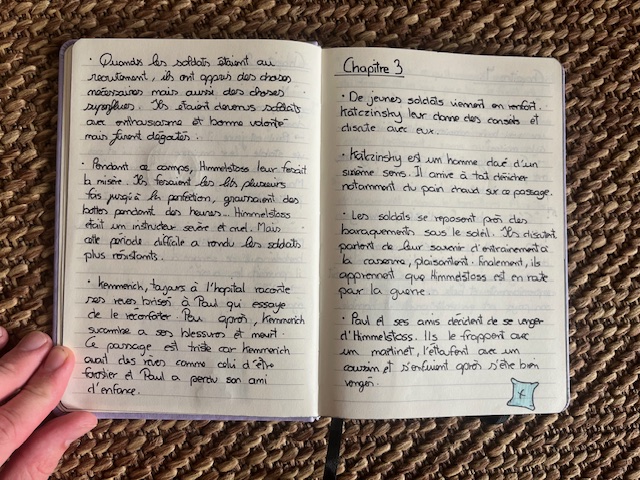 • Quands les soldats étaient au
recrutement, ils ont appris des choses
nécessaires mais aussi des choses
superflues. Ils étaient devenus soldats
avec enthousiasme et bonne volonté
mais furent dégoûtés.
• Pendant ce camps, Himmelstoss leur ferait
la misère. Ils feraient les lits plusieurs
fois jusqu'à la perfection, graissaient des
bottes pendant des heures... Himmelstoss
était un instructeur sévère et cruel. Mais
cette période difficile a rendu les soldats
plus résistants.
• Kemmerich, toujours à l'hopital raconte
ses reves brisés à Paul qui essaye
de le reconforter. Peu après, Kemmerich
sucombe a ses blessures et meurt.
Ce passage est triste car Kemmerich
avait des rêves comme celui d'être
forestier et Paul a perdu son ami
d'enfance.
Chapitre 3
• De jeunes soldats viennent en renfort.
Katczinshy leur donne des conseils et
discute avec eux.
• Katczinshy est un homme doué d'un
sixième sens. Il arrive à tout dénicher
notamment du pain chaud sur ce passage.
• Les soldats se reposent près des
baraquements sous le soleil. Ils discutent
parlent de leur souvenir d'entrainement à
la caserne, plaisantent. Finalement, ils
apprennent que Himmelstoss est en route
pour la guerre.
• Paul et ses amis décident de se venger
d'Himmelstoss. Ils le frappent avec
un martinet, l'étouffent avec un
coussin et s'enfuient après s'être bien
vengés.